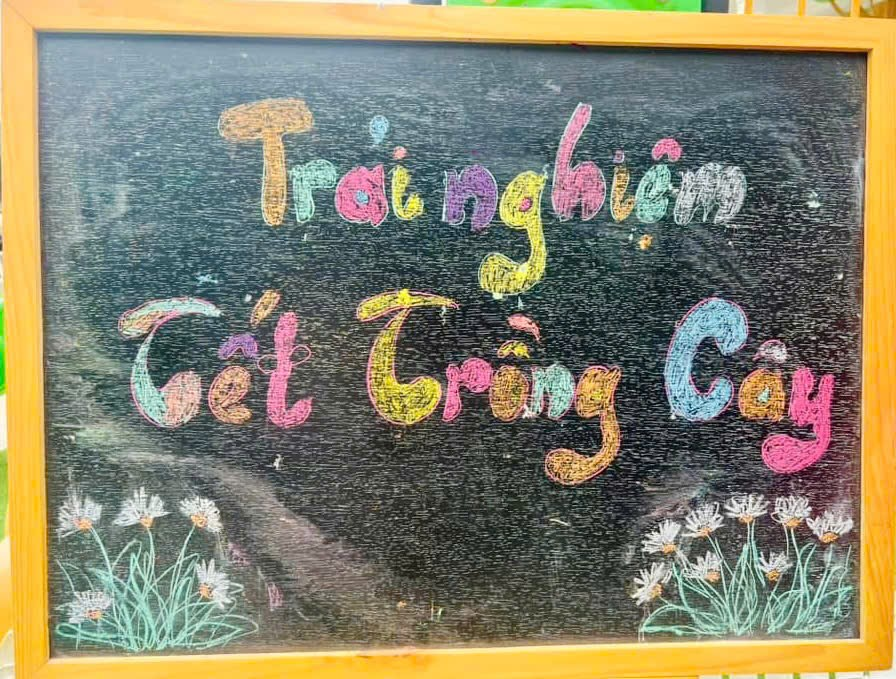 Trải nghiệm
Tết Trồng Cây